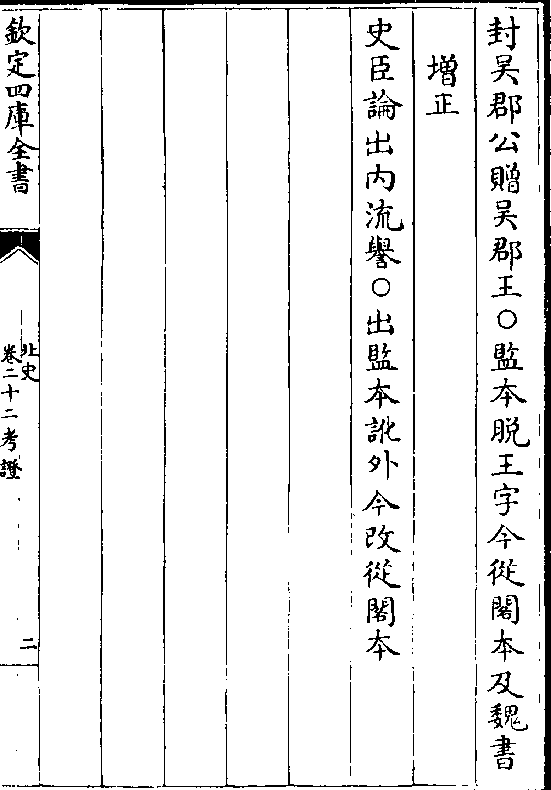 封吴郡公贈吴郡王○監本脱王字今從閣本及魏書
增正
史臣論出内流譽○出監本訛外今改從閣本
欽定四庫全書
北史
卷二十二考證
二